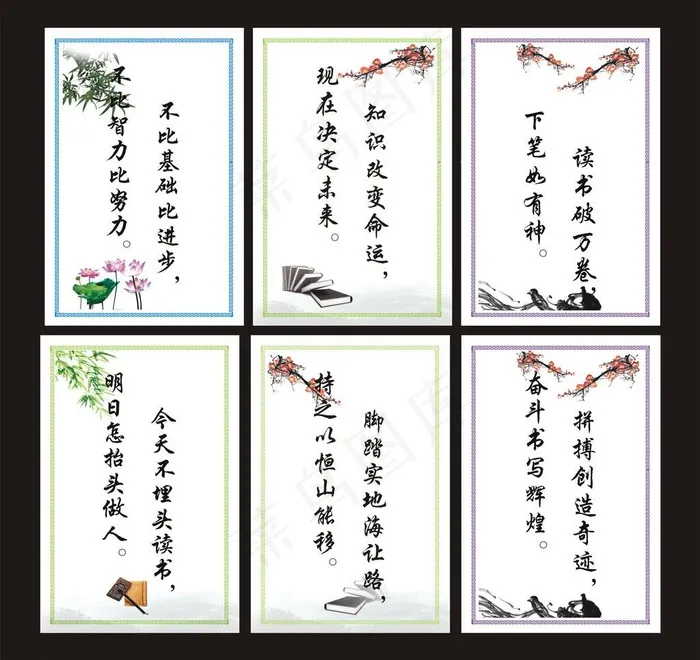 不比基础比进步，
不比智力比努力。
知识改变命运，
现在决定未来。
读书破万卷，
下笔如有神。
今天不埋头读书，
明日怎抬头做人。
脚踏实地海让路，
持之以恒山能移。
拼搏创造奇迹，
奋斗书写辉煌。
菜鸟图库